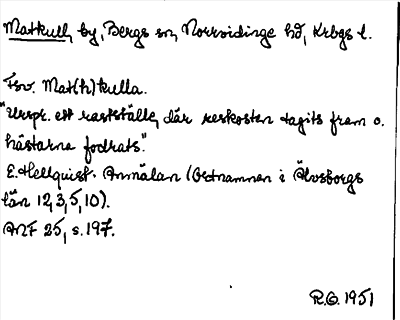 Matkull, by, Bergs sn, Norrvidinge hd, Krbgs l.
Fsv. Mat(h)kulla.
"Urspr. ett rastställe, där reskosten tagits fram o.
hästarna fodrats".
E. Hellquist. Anmälan (Ortnamnen i Älvsborgs
län 12,3,5,10).
ANF 25, s. 197.
R.O. 1951